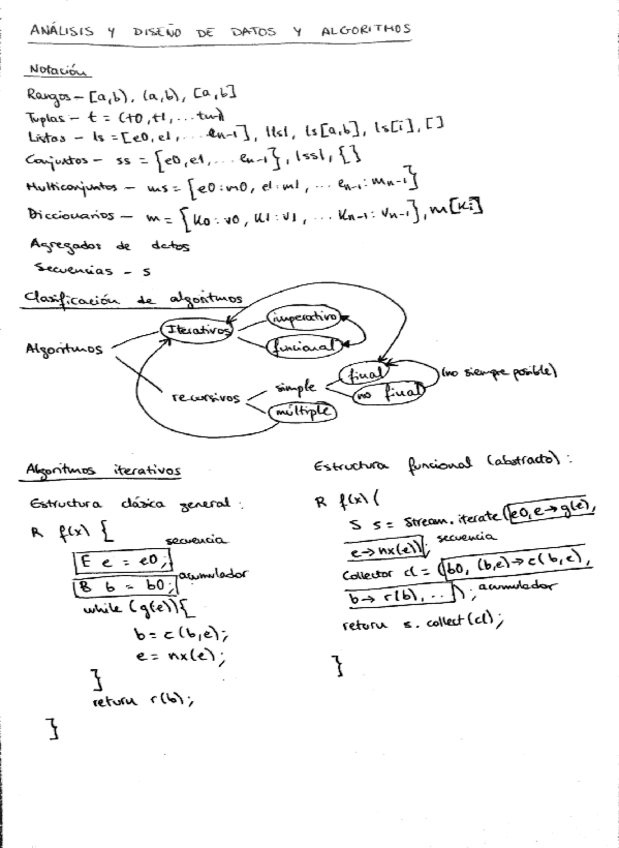 ANÁLISIS Y DISEÑO DE DATOS Y ALGORITMOS
Notación
Rangos - [a,b), (a,b), [a,b]
Tuplas - t = (t0, t1, ... tn-1)
Listas - ls = [e0, e1, ... en-1], |ls|, ls[a,b], ls[i], []
Conjuntos - ss = {e0, e1, ... en-1}, |ss|, {}
Multiconjuntos - ms = {e0:m0, e1:m1, ... en-1:mn-1}
Diccionarios - m = {K0:v0, K1:v1, ... Kn-1:Vn-1}, m[Ki]
Agregados de datos
Secuencias - s
Clasificación de algoritmos
Algoritmos
Iterativos
imperativo
funcional
recursivos
simple
final
no final
(no siempre posible)
múltiple
Algoritmos iterativos
Estructura clásica general:
R f(x) {
secuencia
E e = e0;
B b = b0;
acumulador
while (g(e)){
b = c(b,e);
e = nx(e);
}
return r(b);
}
Estructura funcional (abstracto):
R f(x) {
S s = Stream.iterate(e0, e→g(e),
e→nx(e)); secuencia
Collector cl = (b0, (b,e)→c(b,e),
b→r(b), ...); acumulador
return s.collect(cl);
}